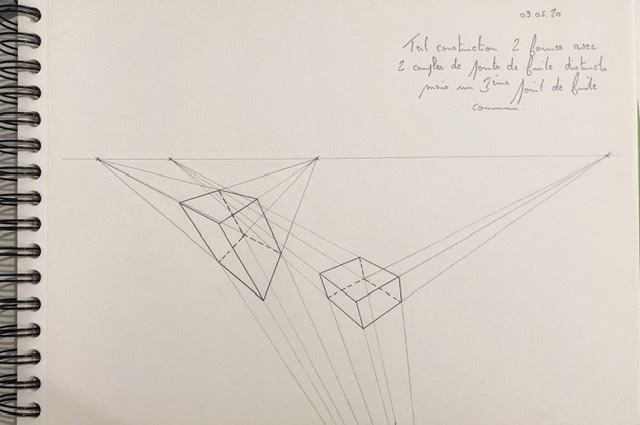 09.05.20
Test construction 2 formes avec
2 couples de points de fuite distincts
mais un 3ème point de fuite
commun.